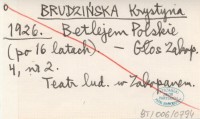 BRUDZIŃSKA Krystyna
1926. Betlejem Polskie
(po 16 latach) – Głos Zakop.
4, nr 2.
Teatr lud. w Zakopanem.
BT/006/0794